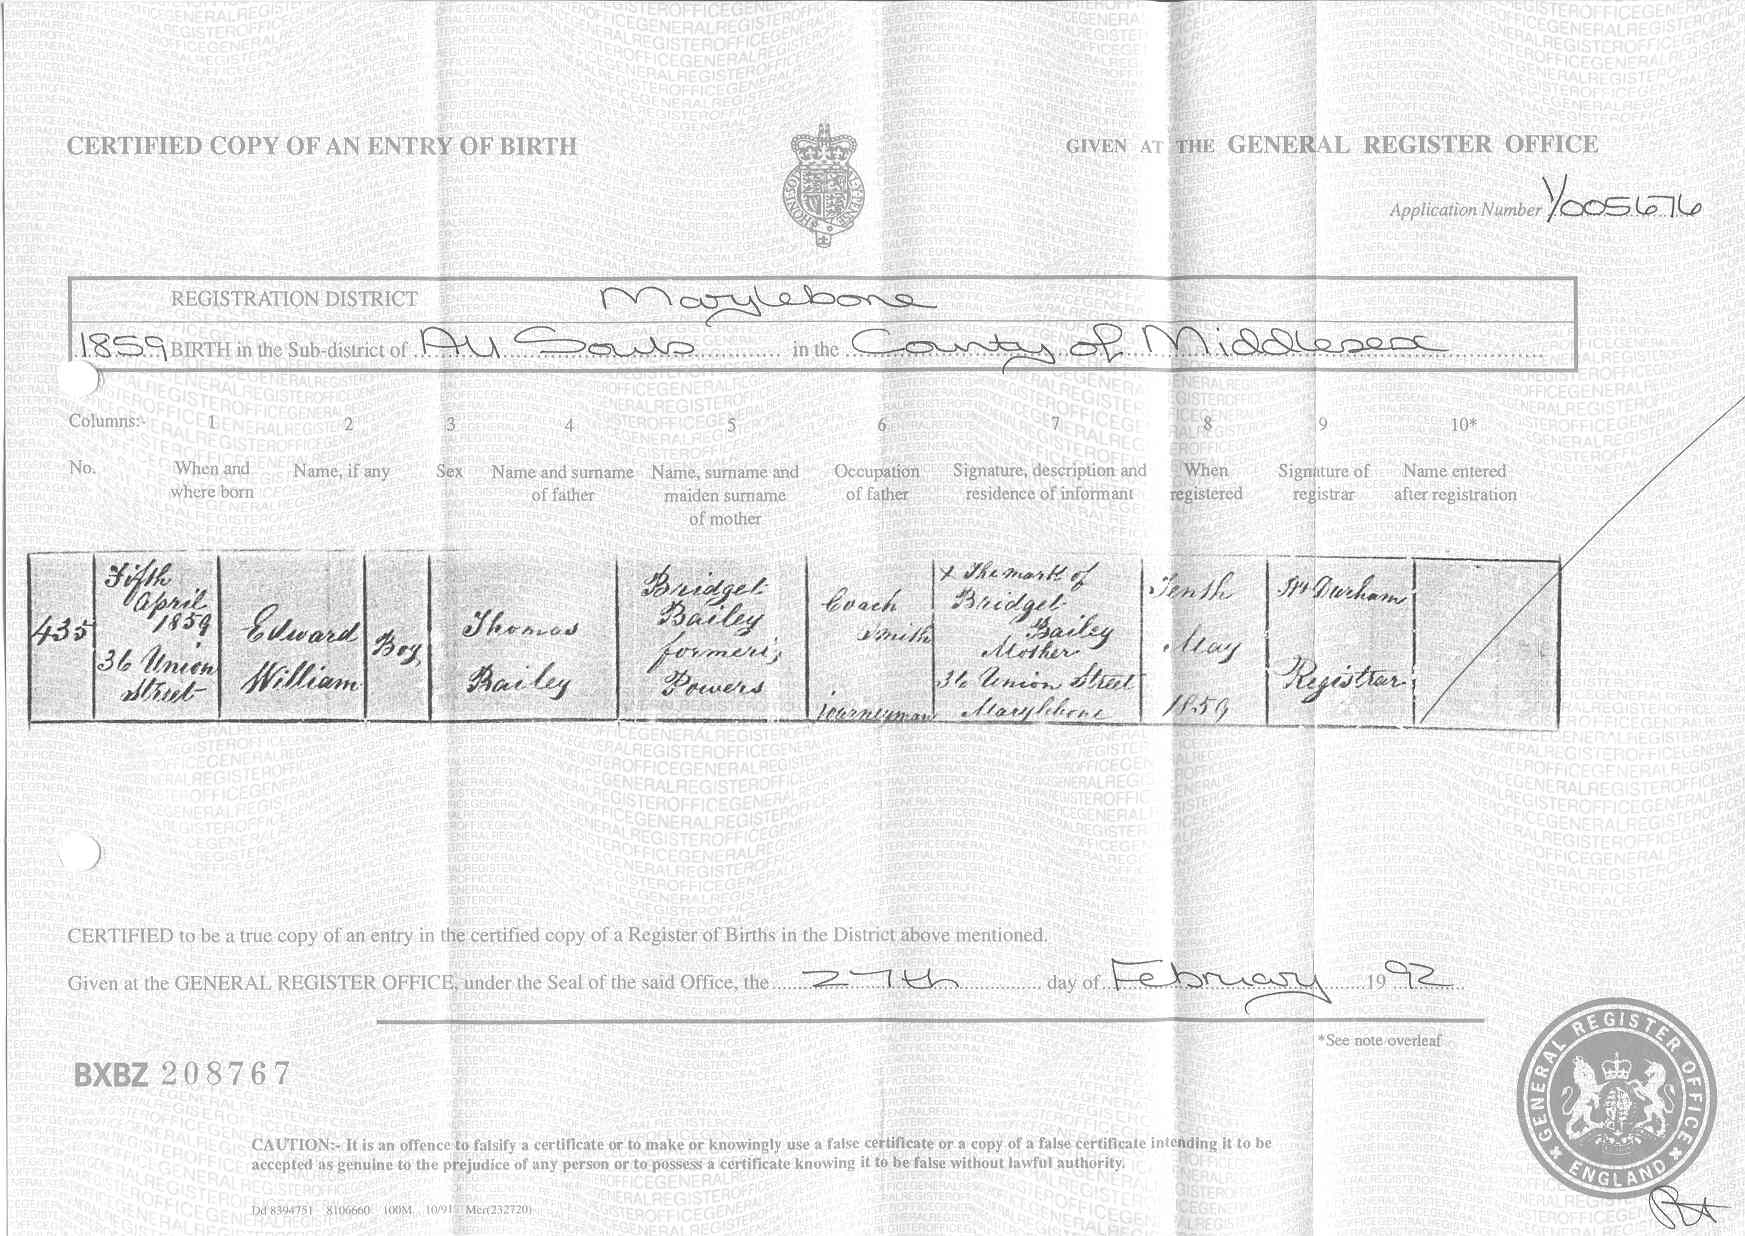 CERTIFIED COPY OF AN ENTRY OF BIRTH
GIVEN AT THE GENERAL REGISTER OFFICE
Application Number Y005676
REGISTRATION DISTRICT Marylebone
1859 BIRTH in the Sub-district of All Souls in the County of Middlesex
Columns:- 1 2 3 4 5 6 7 8 9 10*
No. When and where born
Name, if any
Sex
Name and surname of father
Name, surname and maiden surname of mother
Occupation of father
Signature, description and residence of informant
When registered
Signature of registrar
Name entered after registration
435
Fifth
April
1859
36 Union
Street
Edward
William
Boy
Thomas
Bailey
Bridget
Bailey
formerly
Powers
Coach
Smith
Journeyman
X The mark of
Bridget
Bailey
Mother
36 Union Street
Marylebone
Tenth
May
1859
Durham
Registrar
CERTIFIED to be a true copy of an entry in the certified copy of a Register of Births in the District above mentioned.
Given at the GENERAL REGISTER OFFICE, under the Seal of the said Office, the 27th day of February 1992
*See note overleaf
BXBZ 208767
CAUTION:- It is an offence to falsify a certificate or to make or knowingly use a false certificate or a copy of a false certificate intending it to be
accepted as genuine to the prejudice of any person or to possess a certificate knowing it to be false without lawful authority.
Dd 8394751 8106660 100M 10/91 Mcr(232720)
GENERAL REGISTER OFFICE
ENGLAND